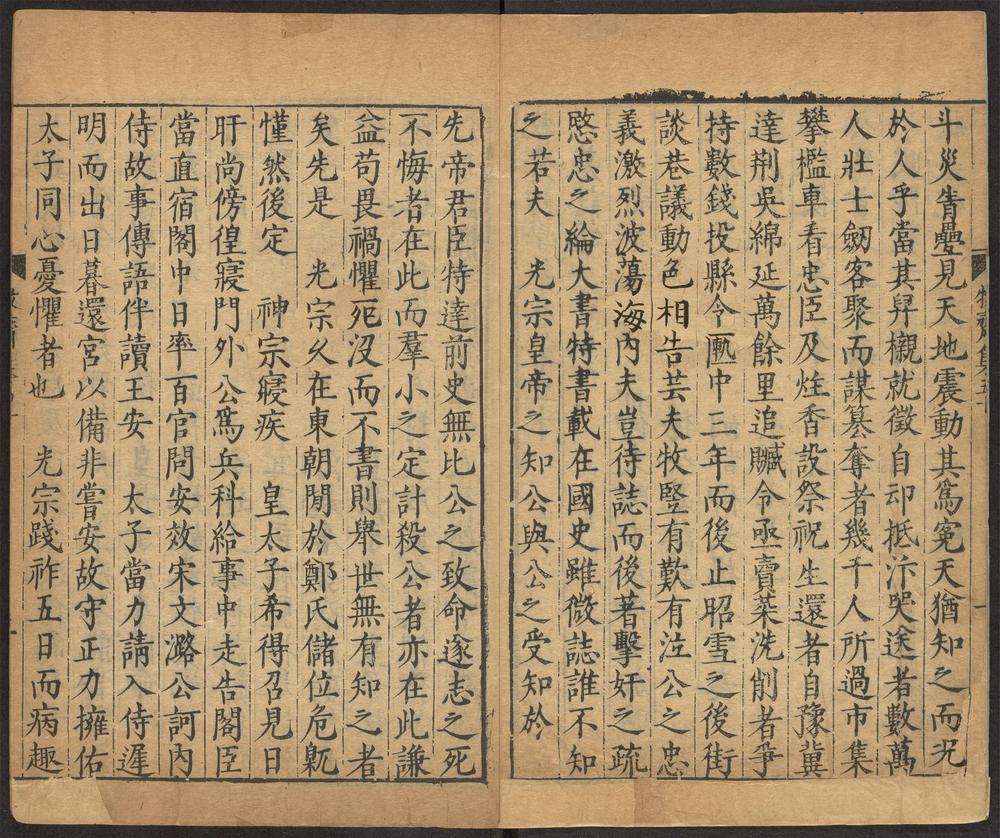 斗災眚疊見天地震動其爲冤天猶知之而况
於人乎當其舁櫬就徵自卭抵汴哭送者數萬
人壯士劒客聚而謀篡奪者幾千人所過市集
攀檻車看忠臣及炷香設祭祝生還者自豫冀
達荆吳綿延萬餘里追贓令亟賣菜洗削者爭
持數錢投縣令匭中三年而後止昭雪之後街
談巷議動色相告芸夫牧豎有歎有泣公之忠
義激烈波蕩海內夫豈待誌而後著擊奸之疏
愍忠之綸大書特書載在國史雖微誌誰不知
之若夫　光宗皇帝之知公與公之受知於
先帝君臣特達前史無比公之致命遂志之死
不悔者在此而羣小之定計殺公者亦在此謙
益苟畏禍懼死沒而不書則舉世無有知之者
矣先是　光宗久在東朝閒於鄭氏儲位危亂
慬然後定　神宗寢疾　皇太子希得召見日
旰尚傍徨寢門外公爲兵科給事中走告閣臣
當直宿閣中日率百官問安效宋文潞公訶內
侍故事傳語伴讀王安　太子當力請入侍遲
明而出日暮還宮以備非嘗安故守正力擁佑
太子同心憂懼者也　光宗踐祚五日而病趣